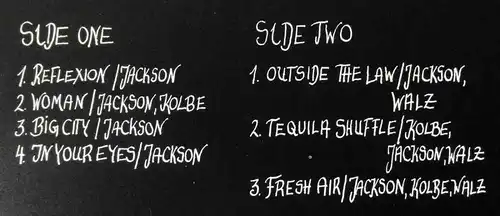 SIDE ONE
1. REFLEXION/JACKSON
2. WOMAN/JACKSON, KOLBE
3. BIG CITY/JACKSON
4. IN YOUR EYES/JACKSON
SIDE TWO
1. OUTSIDE THE LAW/JACKSON,
WALZ
2. TEQUILA SHUFFLE/KOLBE,
JACKSON, WALZ
3. FRESH AIR/JACKSON, KOLBE, WALZ